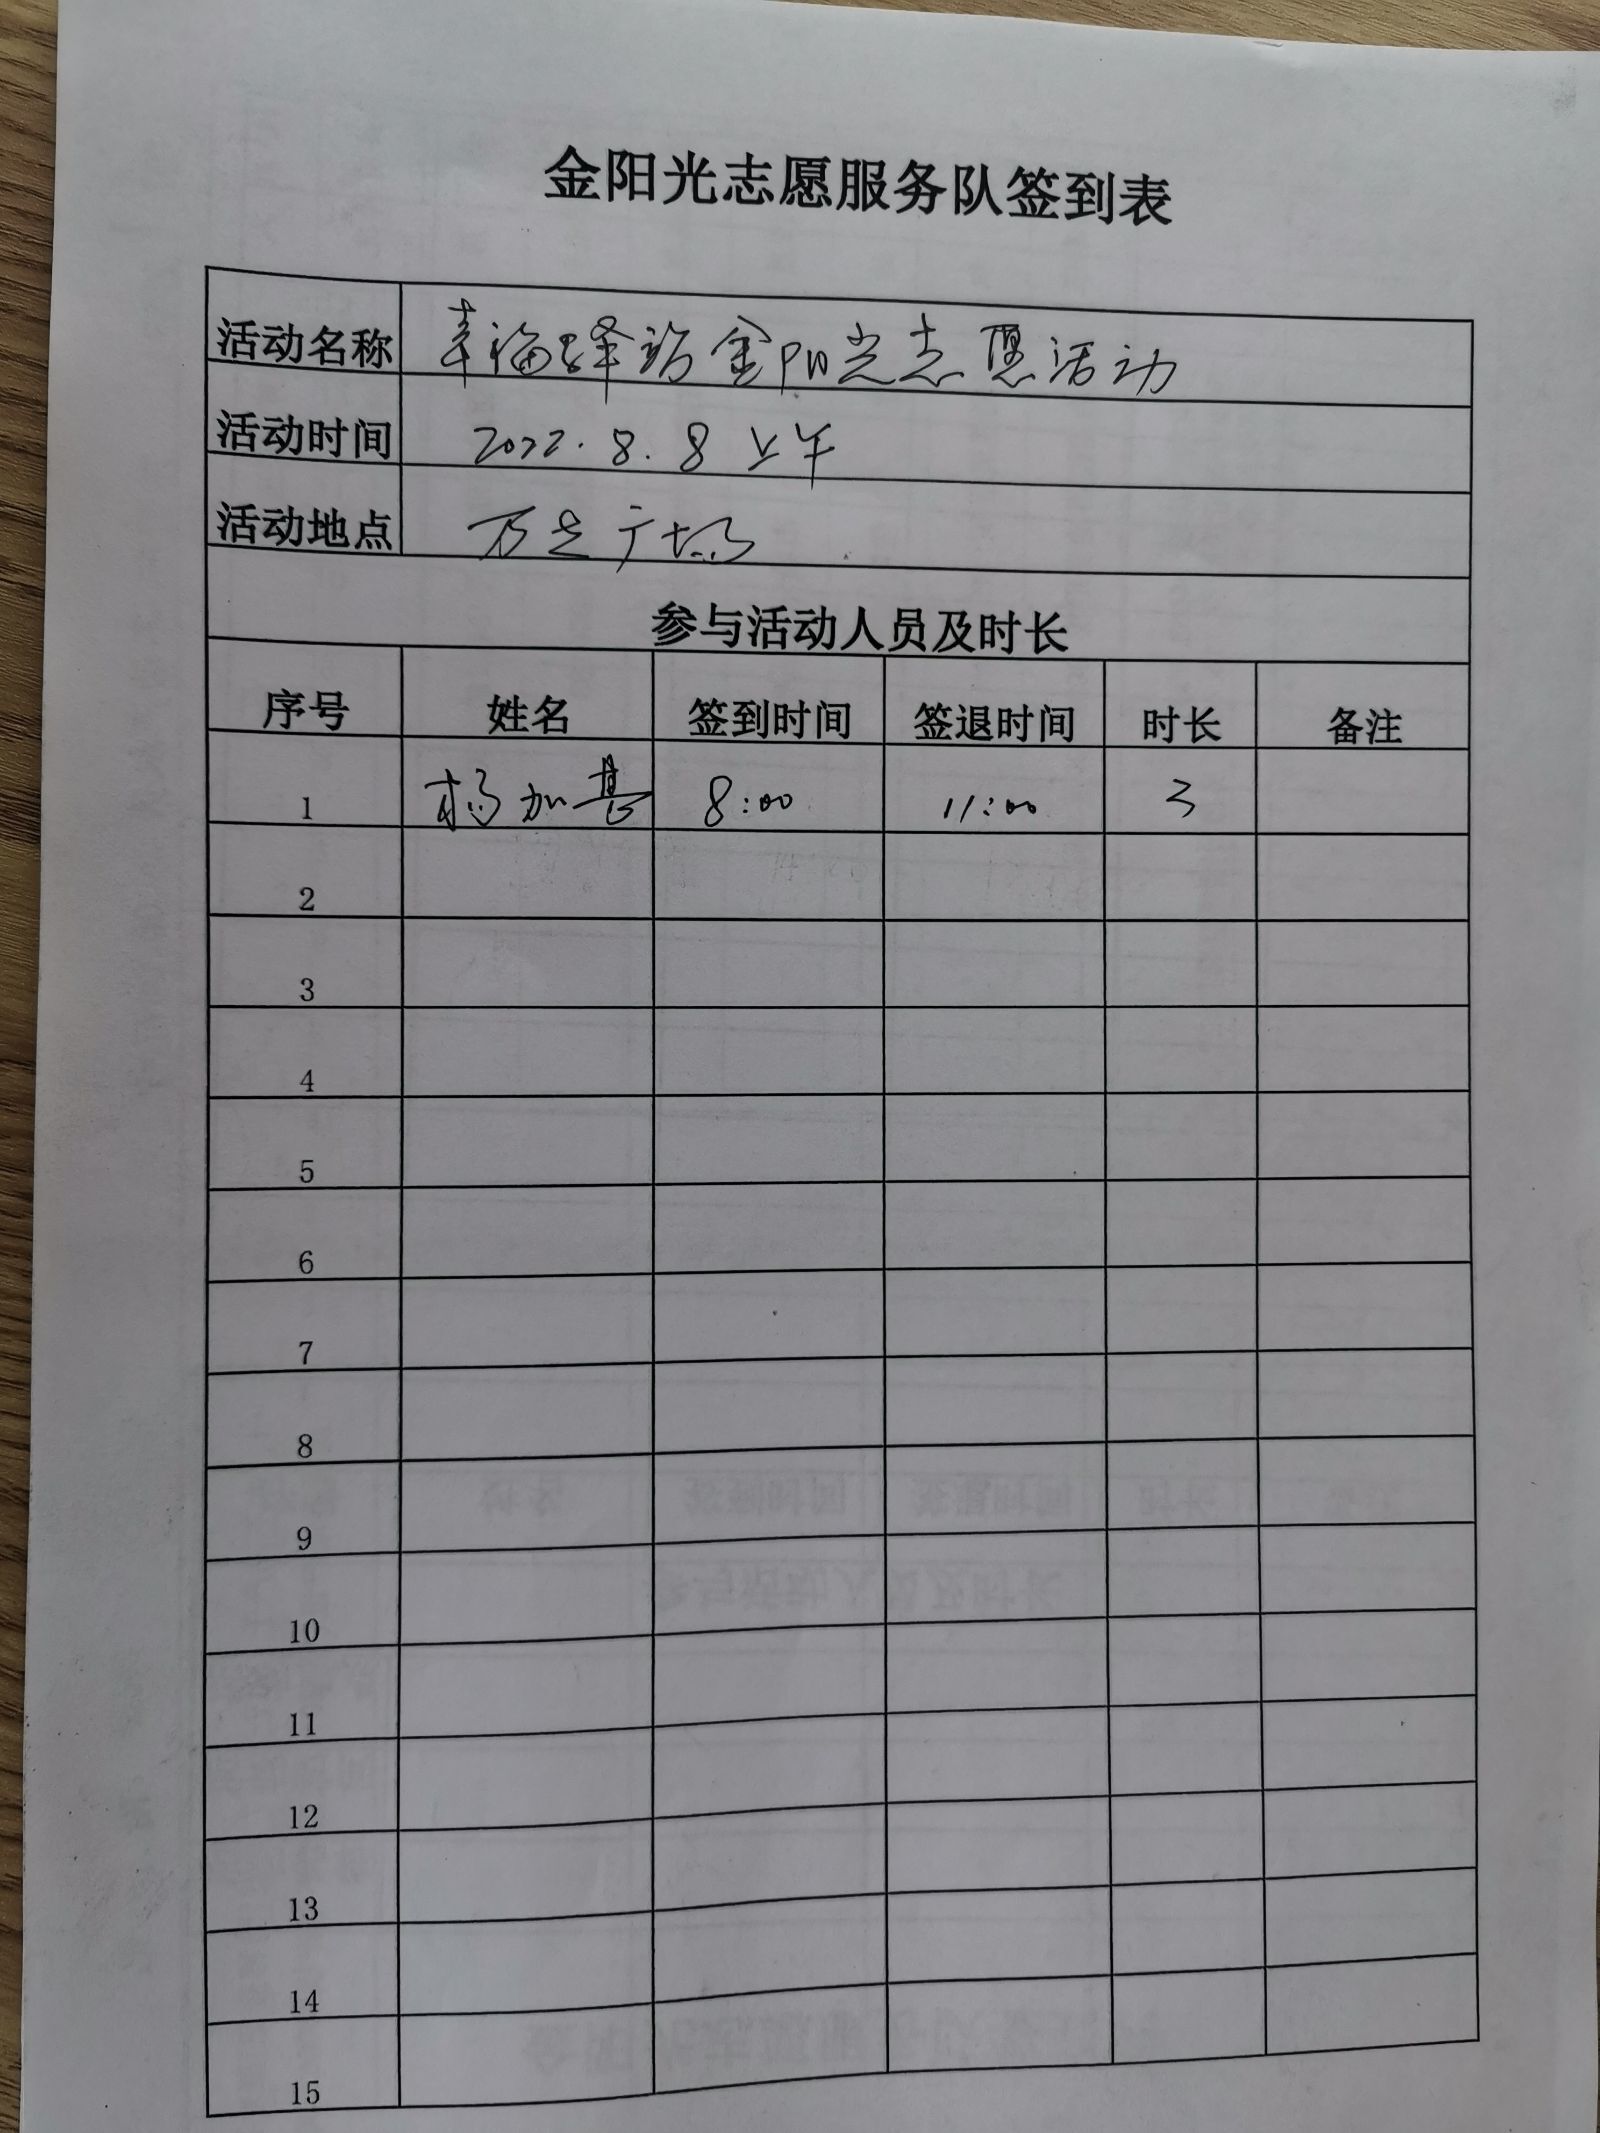 金阳光志愿服务队签到表
活动名称 幸福驿站金阳光志愿活动
活动时间 2022.8.8 上午
活动地点 万达广场
参与活动人员及时长
序号 姓名 签到时间 签退时间 时长 备注
1 杨加 8:00 11:00 3
2
3
4
5
6
7
8
9
10
11
12
13
14
15